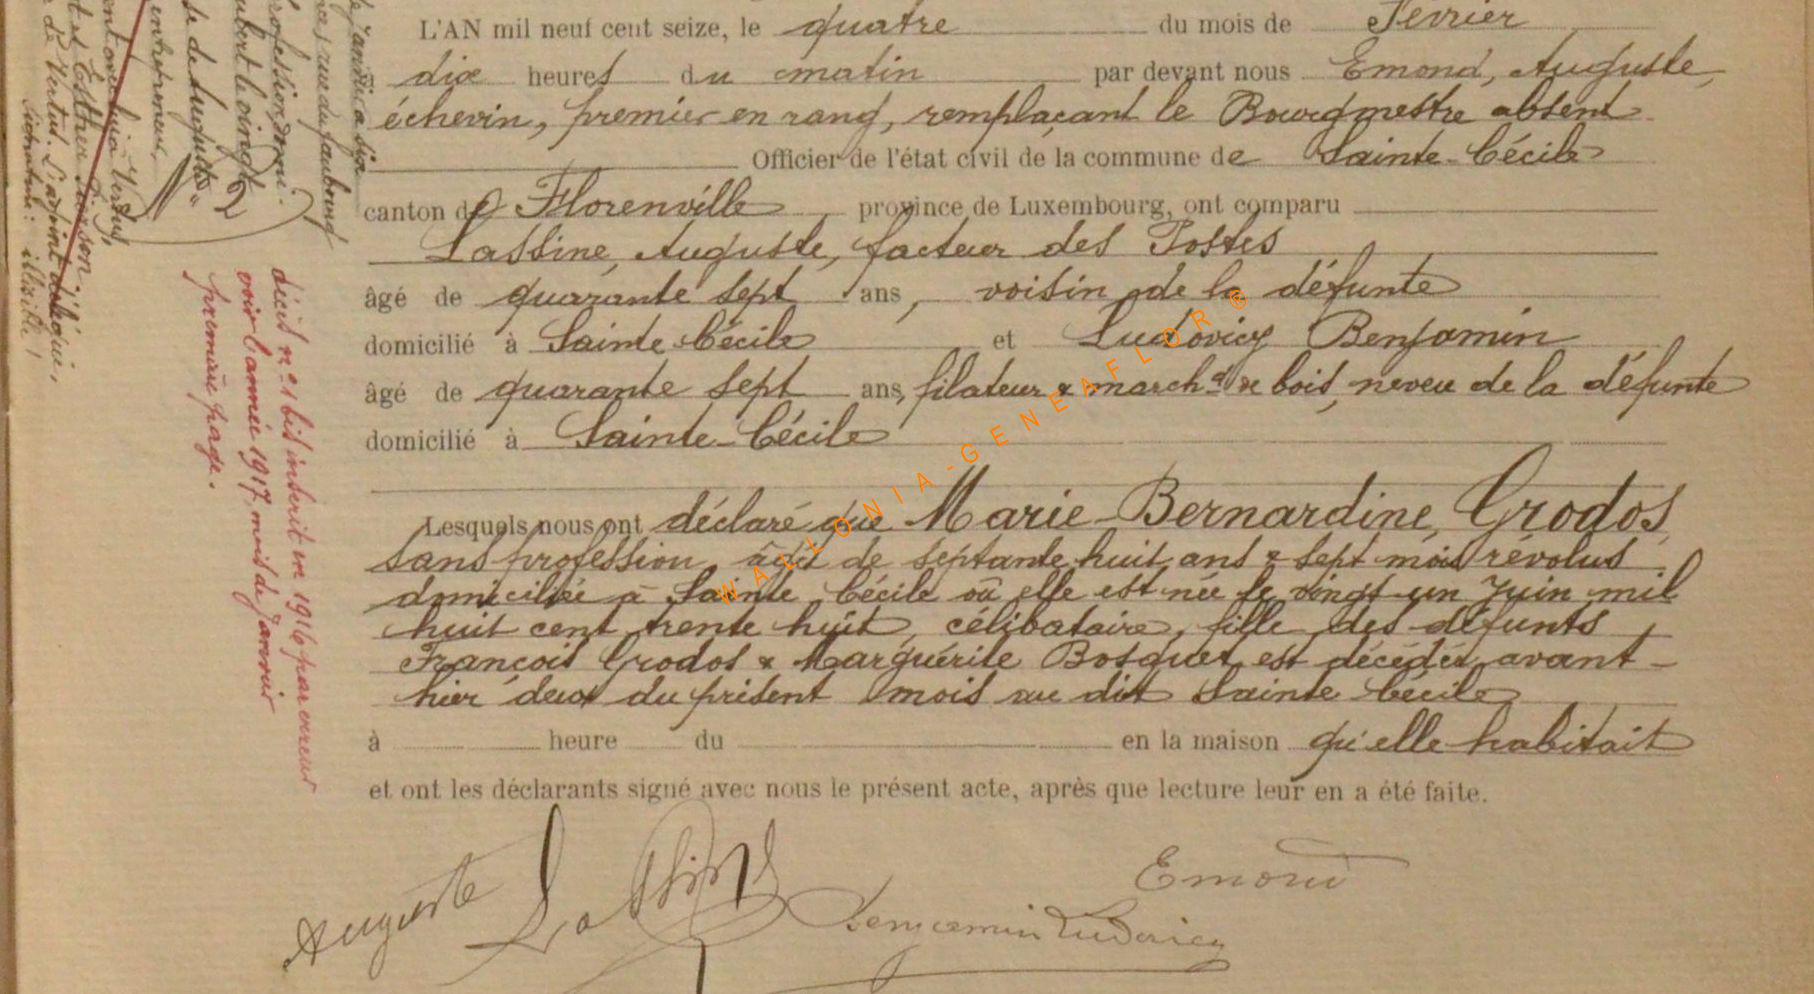 L'AN mil neuf cent seize, le quatre du mois de Février
dix heures du matin par devant nous Emond, Auguste,
échevin, premier en rang, remplaçant le Bourgmestre absent
Officier de l'état civil de la commune de Sainte-Cécile
canton de Florenville, province de Luxembourg, ont comparu
Lassine, Auguste, facteur des Postes
âgé de quarante sept ans, voisin de la défunte
domicilié à Sainte-Cécile et Ludovicy Benjamin
âgé de quarante sept ans, filateur & marchd de bois, neveu de la défunte
domicilié à Sainte-Cécile
Lesquels nous ont déclaré que Marie-Bernardine, Grodos,
sans profession, âgée de septante huit ans & sept mois révolus
domiciliée à Sainte Cécile où elle est née le vingt-un Juin mil
huit cent trente huit, célibataire, fille des défunts
François Grodos & Marguérite Bosquet, est décédée, avant-
hier deux du présent mois au dit Sainte Cécile
à heure du en la maison qu'elle habitait
et ont les déclarants signé avec nous le présent acte, après que lecture leur en a été faite.
Auguste Lassine
Emond
Benjamin Ludovicy
N° 2
décès n° 1 bis inscrit en 1916 par erreur
voir l'année 1917, mois de Janvier
première page.
rue du faubourg
profession
se de Auguste
entrepreneur,
Signature: illisible!
WALLONIA-GENEAFLOR®